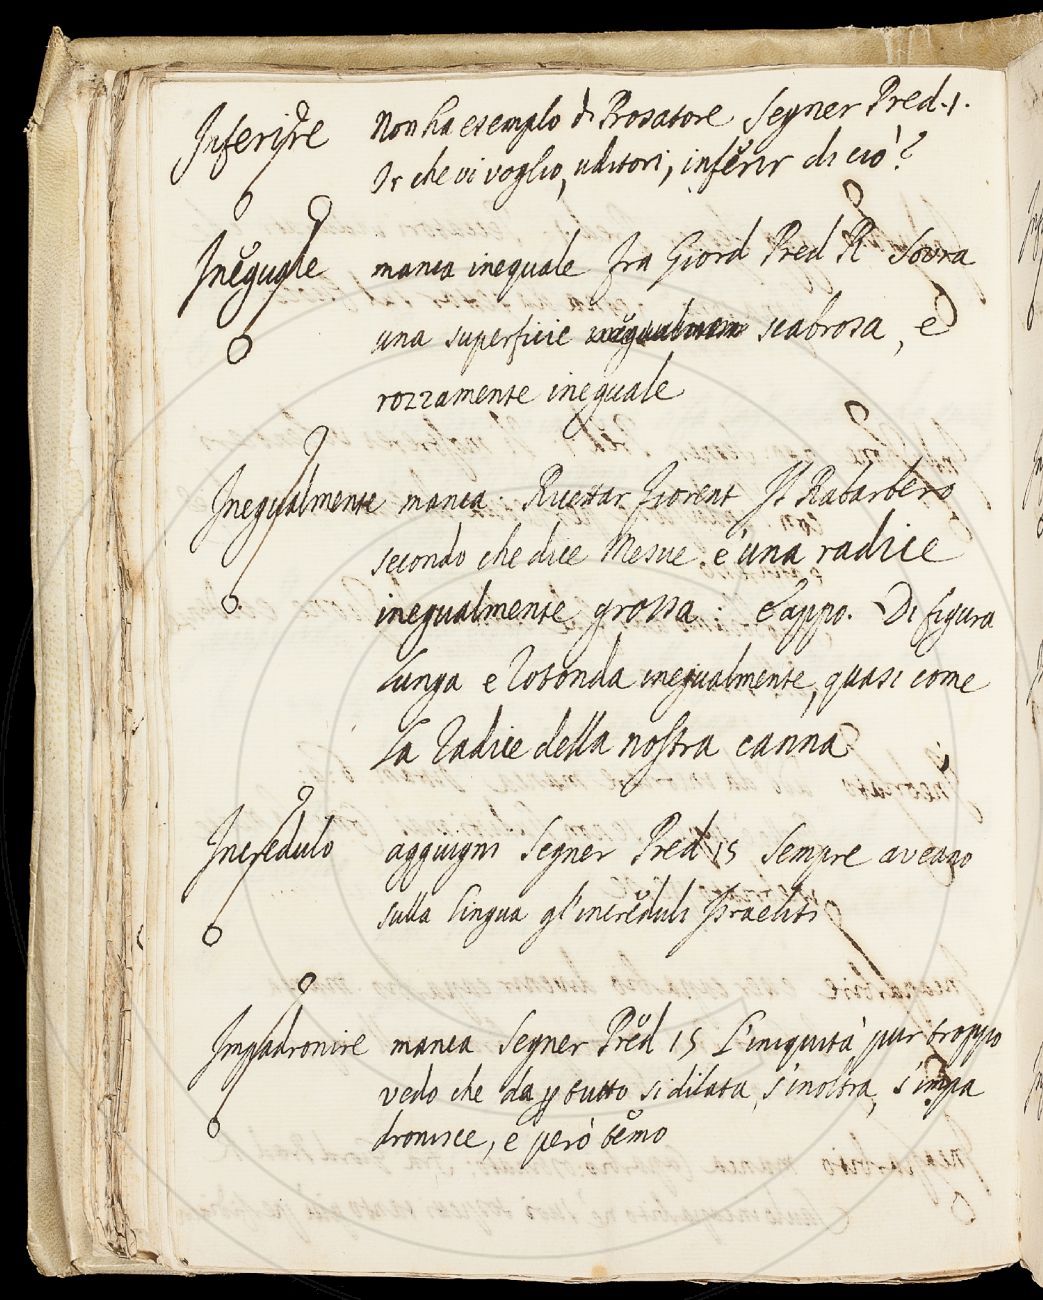 Inferire Non ha esempio di Prosatore Segner Pred. 1.
Or che vi voglio, uditori, inferir di ciò?
Ineguale manca ineguale Fra Giord Pred R Sovra
una superficie scabrosa, e
rozzamente ineguale
Inegualmente manca. Ricettar Fiorent Il Rabarbero
secondo che dice Mesue è una radice
inegualmente grossa: E appo. Di figura
lunga e rotonda inegualmente, quasi come
la radice della nostra canna
Incredulo aggiugni Segner Pred 15 Sempre aveano
sulla lingua gl'increduli Israeliti
Impadronire manca Segner Pred 15 L'iniquità pur troppo
vedo che da p tutto si dilata, s'inoltra, s'impa
dronisce, e però temo